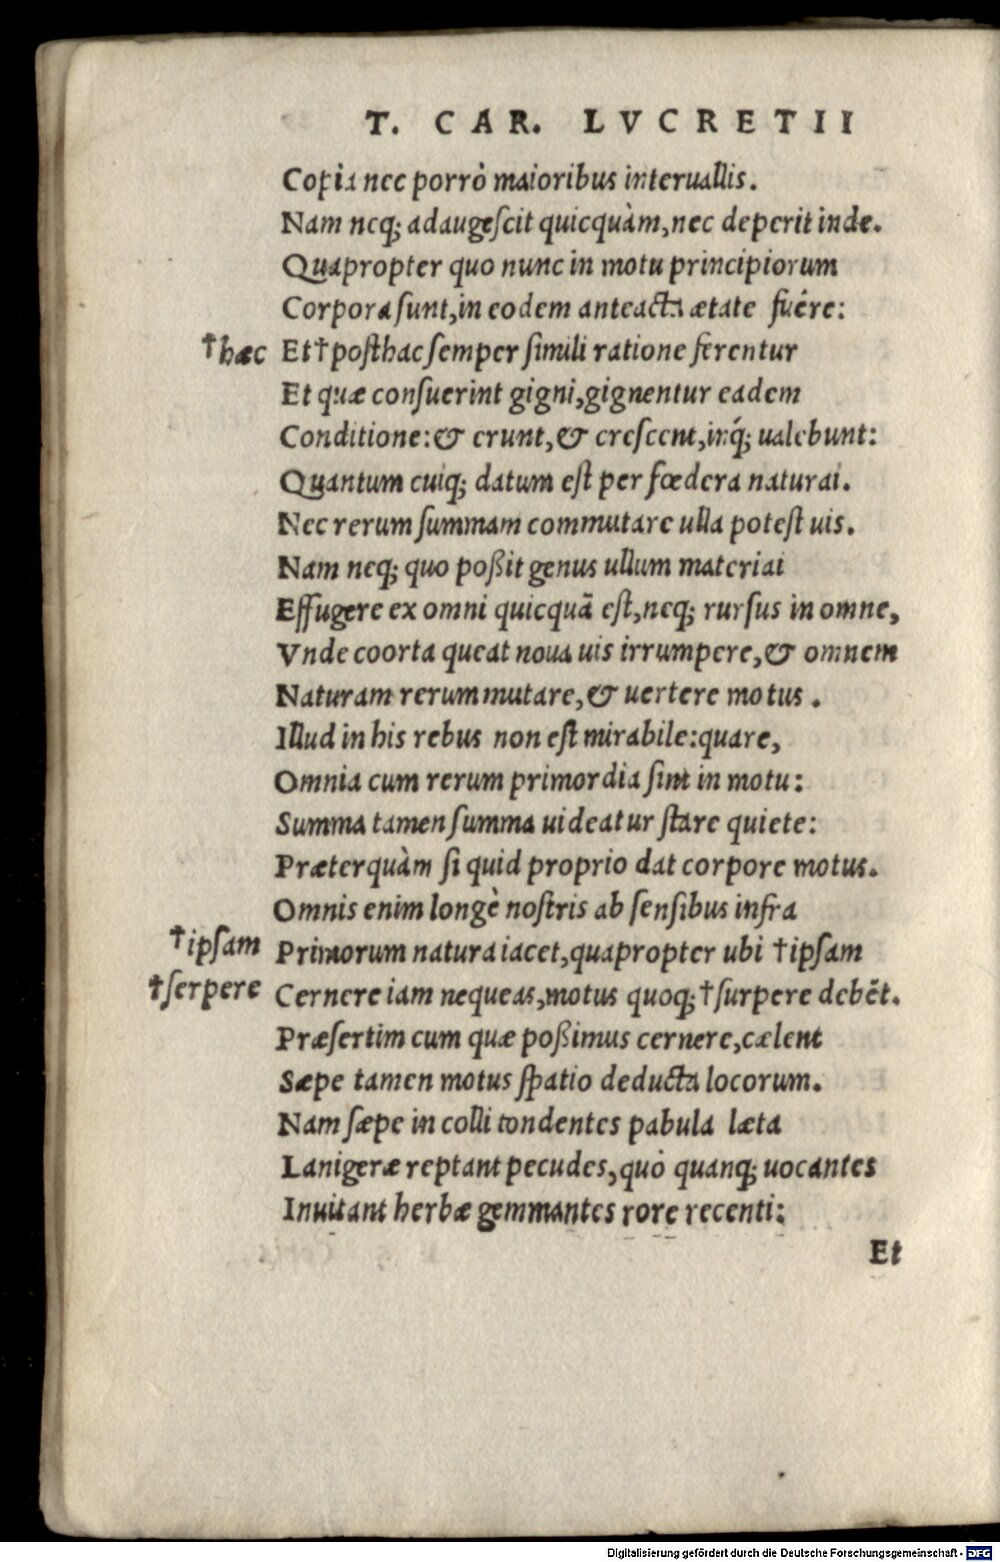 T. CAR. LVCRETII
Copia nec porrò maioribus interuallis.
Nam neq; adaugeſcit quicquàm, nec deperit inde.
Quapropter quo nunc in motu principiorum
Corpora ſunt, in eodem anteacta ætate fuêre:
†hæc Et †poſthac ſemper ſimili ratione ferentur
Et quæ conſuerint gigni, gignentur eadem
Conditione: & erunt, & creſcent, inq́; ualebunt:
Quantum cuiq; datum eſt per fœdera naturai.
Nec rerum ſummam commutare ulla poteſt uis.
Nam neq; quo poßit genus ullum materiai
Effugere ex omni quicquā eſt, neq; rurſus in omne,
Vnde coorta queat noua uis irrumpere, & omnem
Naturam rerum mutare, & uertere motus.
Illud in his rebus non eſt mirabile: quare,
Omnia cum rerum primordia ſint in motu:
Summa tamen ſumma uideatur ſtare quiete:
Præterquàm ſi quid proprio dat corpore motus.
Omnis enim longè noſtris ab ſenſibus infra
†ipſam Primorum natura iacet, quapropter ubi †ipſam
†ſerpere Cernere iam nequeas, motus quoq; †ſurpere debēt.
Præſertim cum quæ poßimus cernere, cælent
Sæpe tamen motus ſpatio deducta locorum.
Nam ſæpe in colli tondentes pabula læta
Lanigeræ reptant pecudes, quò quanq; uocantes
Inuitant herbæ gemmantes rore recenti:
Et
Digitalisierung gefördert durch die Deutsche Forschungsgemeinschaft - DFG